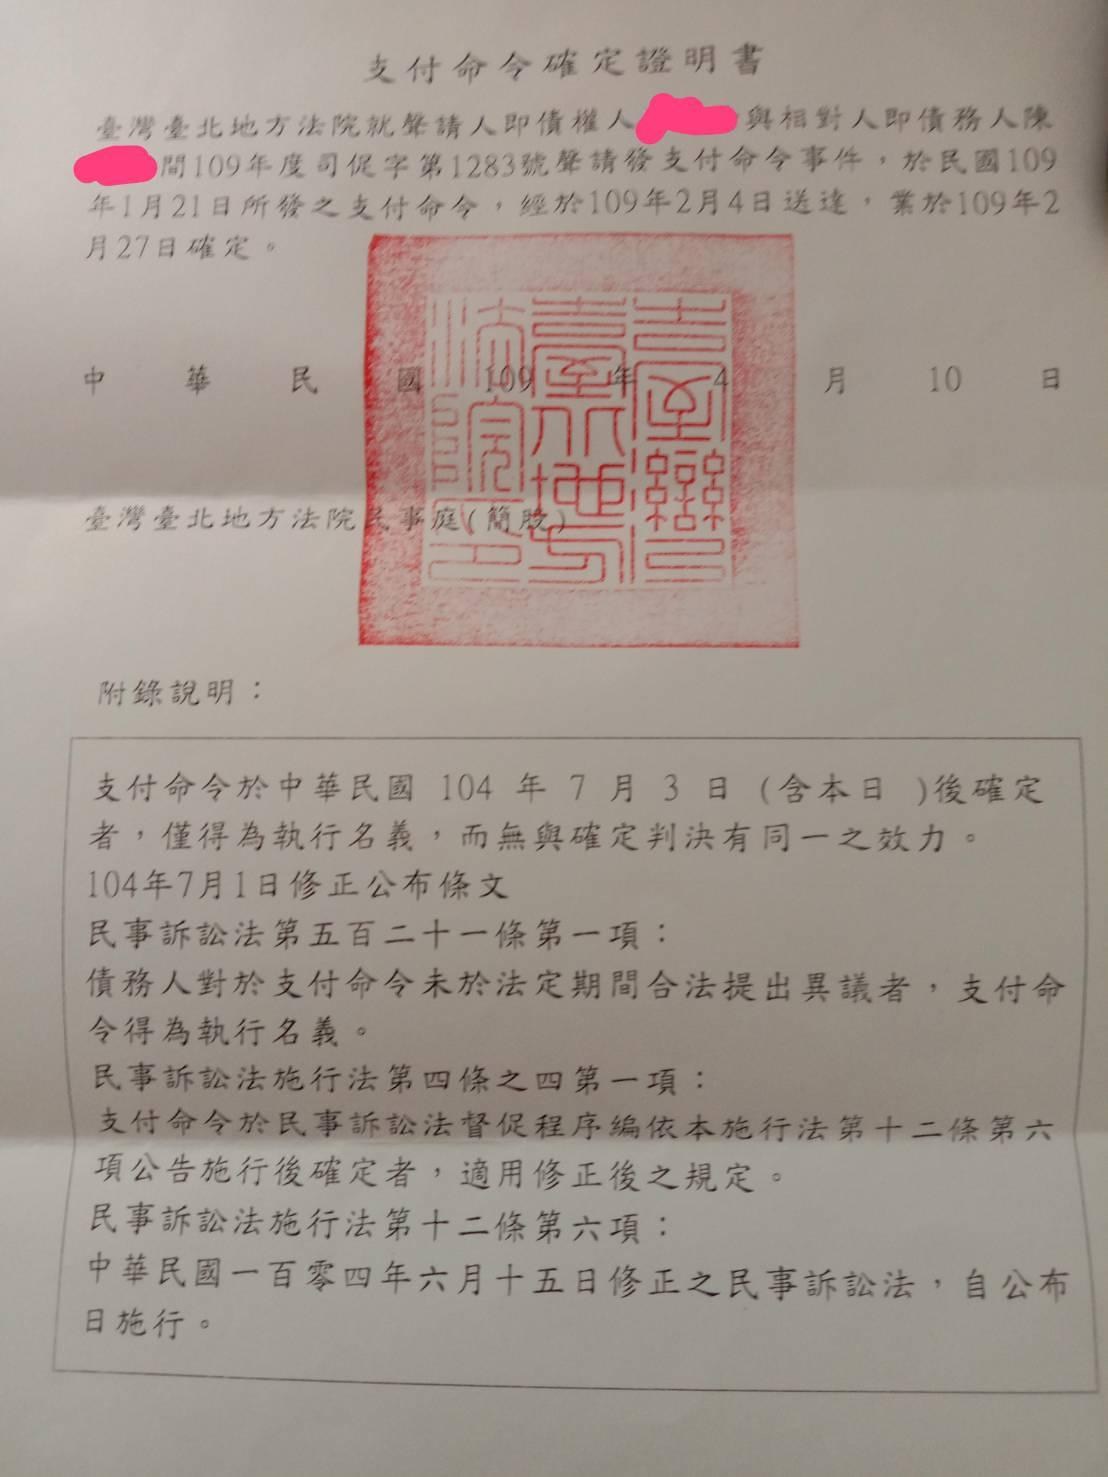 支付命令確定證明書
臺灣臺北地方法院就聲請人即債權人與相對人即債務人陳
間109年度司促字第1283號聲請發支付命令事件，於民國109
年1月21日所發之支付命令，經於109年2月4日送達，業於109年2
月27日確定。
中華民國109年4月10日
臺灣臺北地方法院民事庭(簡股)
臺灣臺北地方法院印
附錄說明：
支付命令於中華民國 104 年 7 月 3 日 (含本日 )後確定
者，僅得為執行名義，而無與確定判決有同一之效力。
104年7月1日修正公布條文
民事訴訟法第五百二十一條第一項：
債務人對於支付命令未於法定期間合法提出異議者，支付命
令得為執行名義。
民事訴訟法施行法第四條之四第一項：
支付命令於民事訴訟法督促程序編依本施行法第十二條第六
項公告施行後確定者，適用修正後之規定。
民事訴訟法施行法第十二條第六項：
中華民國一百零四年六月十五日修正之民事訴訟法，自公布
日施行。